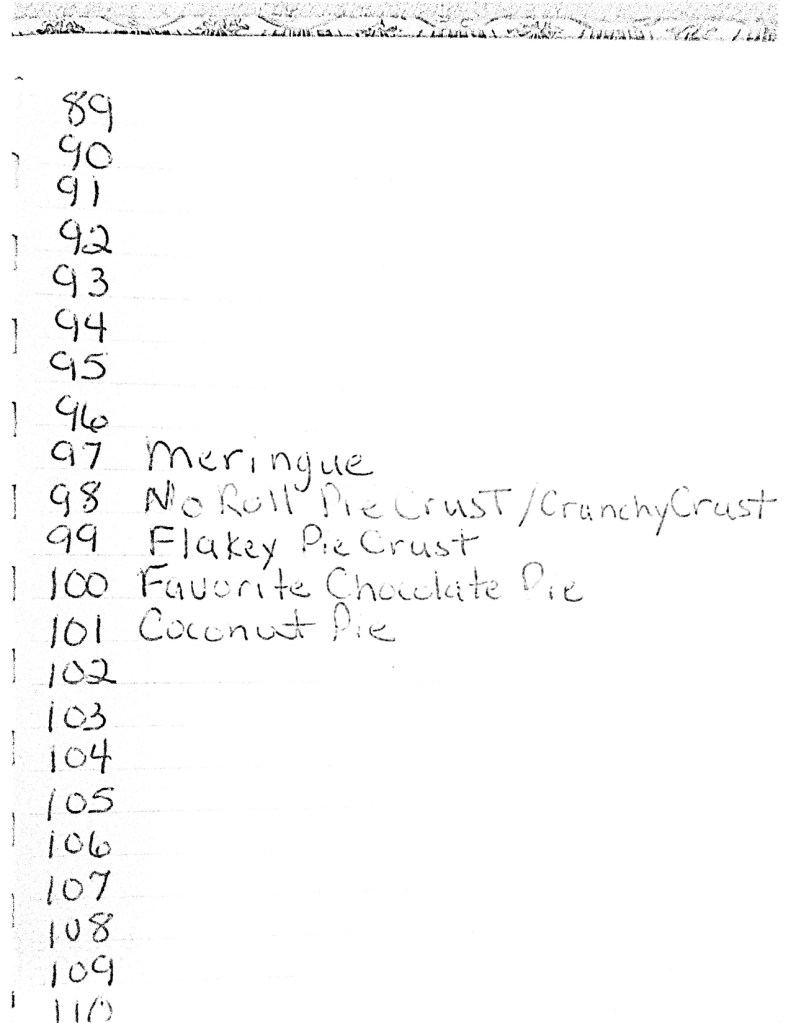 89
90
91
92
93
94
95
96
97 Meringue
98 No Roll Pie Crust/Crunchy Crust
99 Flakey Pie Crust
100 Favorite Chocolate Pie
101 Coconut Pie
102
103
104
105
106
107
108
109
110